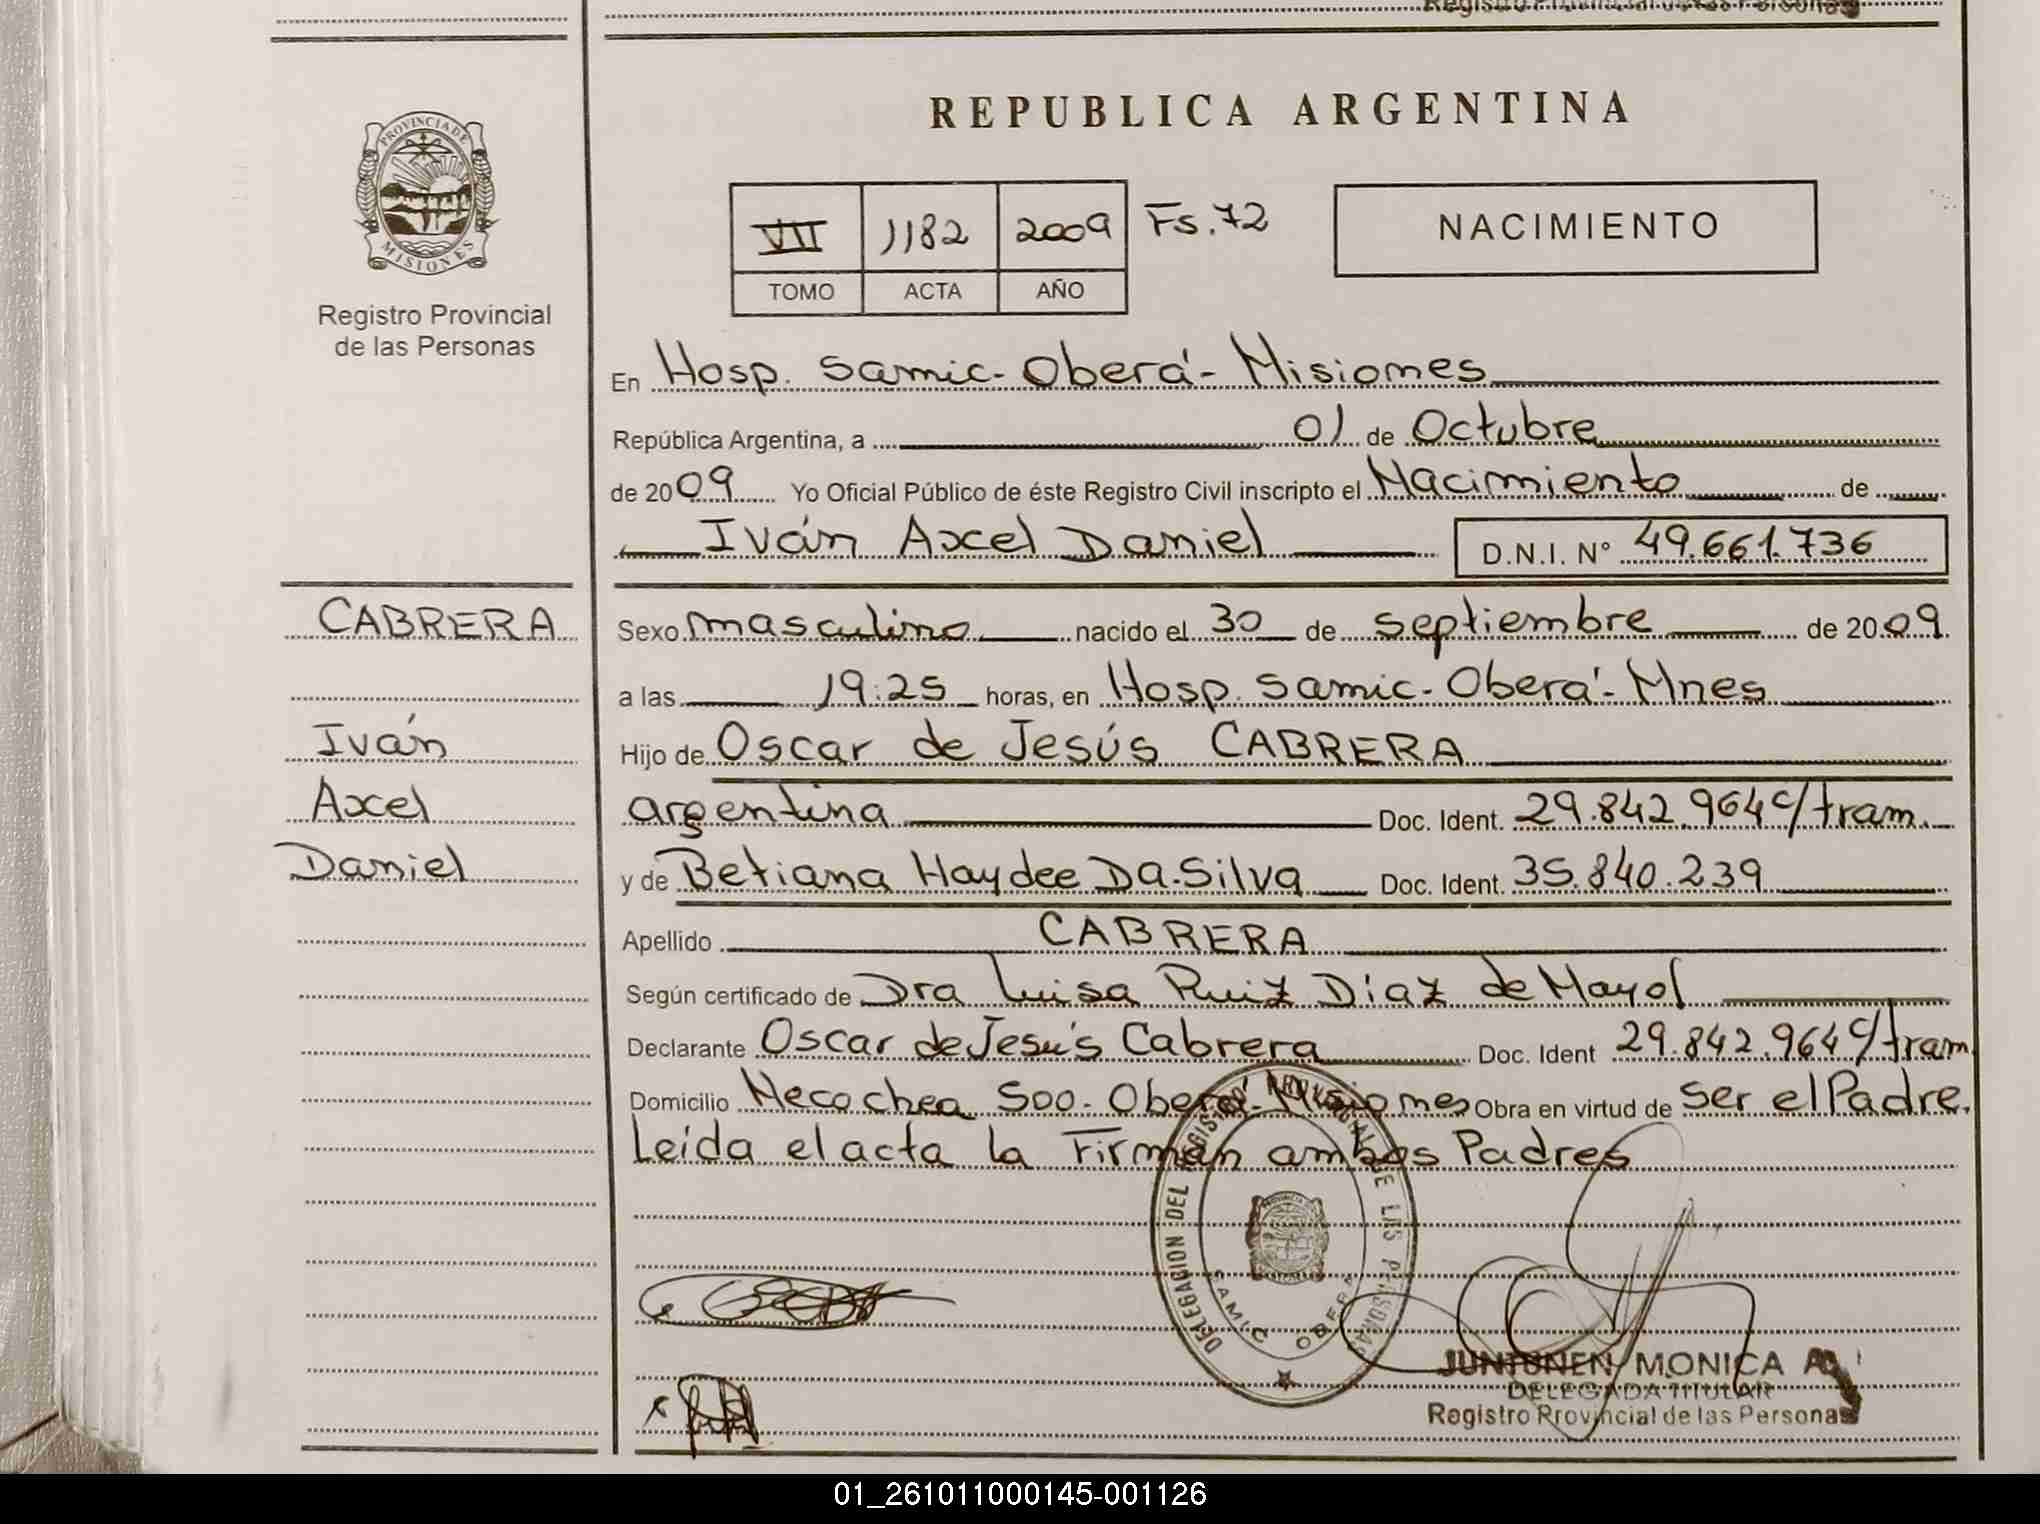 Registro Provincial de las Personas
REPUBLICA ARGENTINA
PROVINCIA DE
MISIONES
Registro Provincial
de las Personas
VII 1182 2009 Fs. 72
TOMO ACTA AÑO
NACIMIENTO
En Hosp. Samic - Oberá - Misiones
República Argentina, a 01 de Octubre
de 2009 Yo Oficial Público de éste Registro Civil inscripto el Nacimiento de
Iván Axcel Daniel D.N.I. N° 49.661.736
CABRERA
Iván
Axcel
Daniel
Sexo masculino nacido el 30 de septiembre de 2009
a las 19:25 horas, en Hosp. Samic - Oberá - Mnes
Hijo de Oscar de Jesús CABRERA
argentina Doc. Ident. 29.842.964 c/tram.
y de Betiana Haydee Da.Silva Doc. Ident. 35.840.239
Apellido CABRERA
Según certificado de Dra Luisa Ruiz Díaz de Mayol
Declarante Oscar de Jesús Cabrera Doc. Ident 29.842.964 c/tram
Domicilio Necochea 500. Oberá - Misiones Obra en virtud de ser el Padre.
Leída el acta la Firman ambos Padres
DELEGACION DEL REGISTRO PROVINCIAL DE LAS PERSONAS
SAMIC OBERA
JUNTUNEN MONICA
DELEGADA TITULAR
Registro Provincial de las Personas
01_261011000145-001126